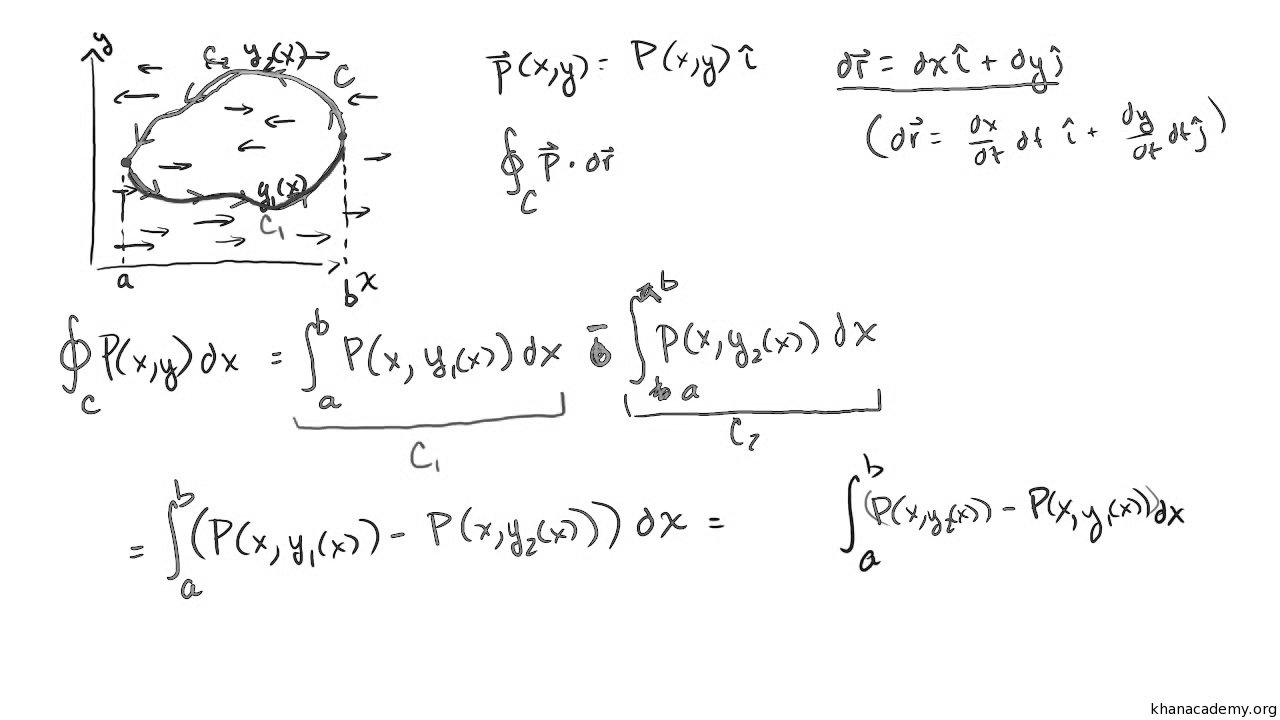 y
C₂ y₂(x)
C
y₁(x)
C₁
a
b
x
P⃗(x,y) = P(x,y) î
∮_C P⃗ · dr⃗
dr⃗ = dx î + dy ĵ
(dr⃗ = dx/dt dt î + dy/dt dt ĵ)
∮_C P(x,y) dx = ∫_a^b P(x, y₁(x)) dx - ∫_a^b P(x, y₂(x)) dx
C₁
C₂
= ∫_a^b (P(x, y₁(x)) - P(x, y₂(x))) dx =
∫_a^b (P(x, y₂(x)) - P(x, y₁(x))) dx
khanacademy.org